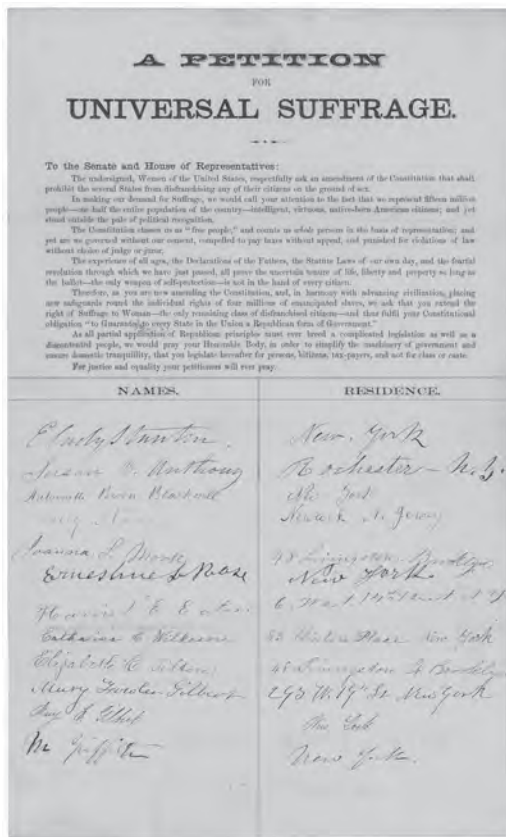 A PETITION
FOR
UNIVERSAL SUFFRAGE.
To the Senate and House of Representatives:
The undersigned, Women of the United States, respectfully ask an amendment of the Constitution that shall
prohibit the several States from disfranchising any of their citizens on the ground of sex.
In making our demand for Suffrage, we would call your attention to the fact that we represent fifteen million
people—one half the entire population of the country—intelligent, virtuous, native-born American citizens; and yet
stand outside the pale of political recognition.
The Constitution classes us as "free people," and counts us whole persons in the basis of representation; and
yet are we governed without our consent, compelled to pay taxes without appeal, and punished for violations of law
without choice of judge or juror.
The experience of all ages, the Declarations of the Fathers, the Statute Laws of our own day, and the fearful
revolution through which we have just passed, all prove the uncertain tenure of life, liberty and property so long as
the ballot—the only weapon of self-protection—is not in the hand of every citizen.
Therefore, as you are now amending the Constitution, and, in harmony with advancing civilization, placing
new safeguards round the individual rights of four millions of emancipated slaves, we ask that you extend the
right of Suffrage to Woman—the only remaining class of disfranchised citizens—and thus fulfil your Constitutional
obligation "to Guarantee to every State in the Union a Republican form of Government."
As all partial application of Republican principles must ever breed a complicated legislation as well as a
discontented people, we would pray your Honorable Body, in order to simplify the machinery of government and
ensure domestic tranquillity, that you legislate hereafter for persons, citizens, tax-payers, and not for class or caste.
For justice and equality your petitioners will ever pray.
NAMES. RESIDENCE.
E Cady Stanton. New. York
Susan B. Anthony Rochester - N.Y.
Antoinette Brown Blackwell New York
Lucy Stone Newark N. Jersey
Joanna S. Morse 48 Livingston Brooklyn
Ernestine L Rose New York
Harriet E. Eaton 6. West 14th Street N.Y
Catharine C Wilkeson 83 Clinton Place New York
Elizabeth R Tilton 48 Livingston St Brooklyn
Mary Fowler Gilbert 293 W. 19th St New York
New York
M Griffith New York.